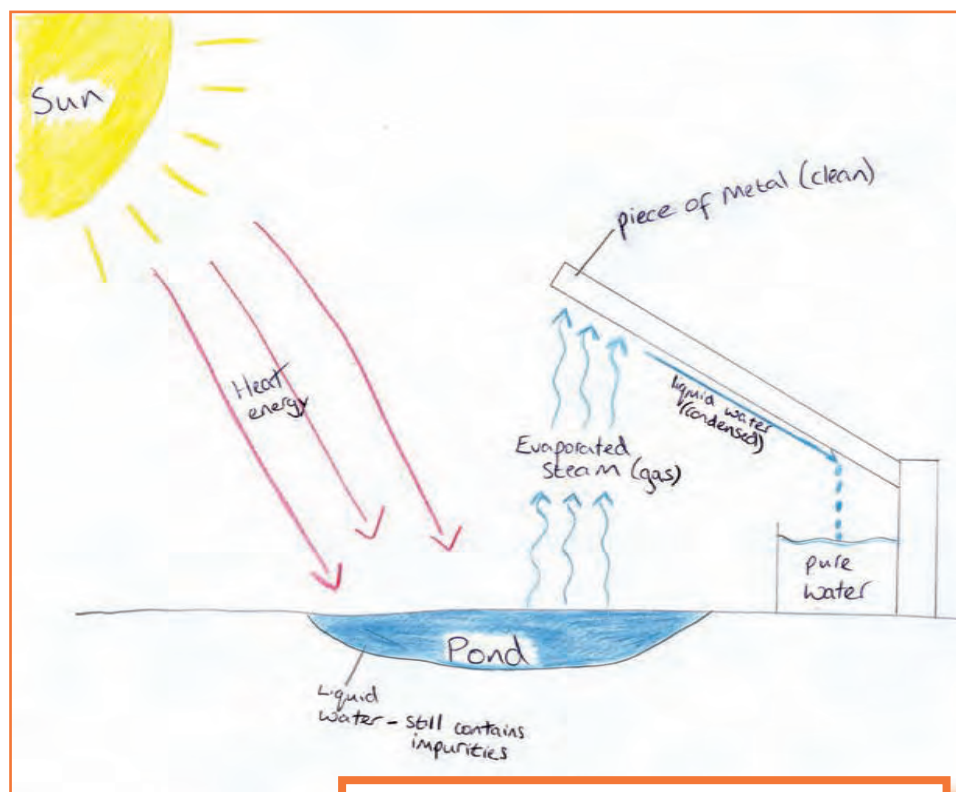 Sun
piece of Metal (clean)
Heat
energy
liquid water
(condensed)
Evaporated
steam (gas)
pure
water
Pond
Liquid
water - still contains
impurities